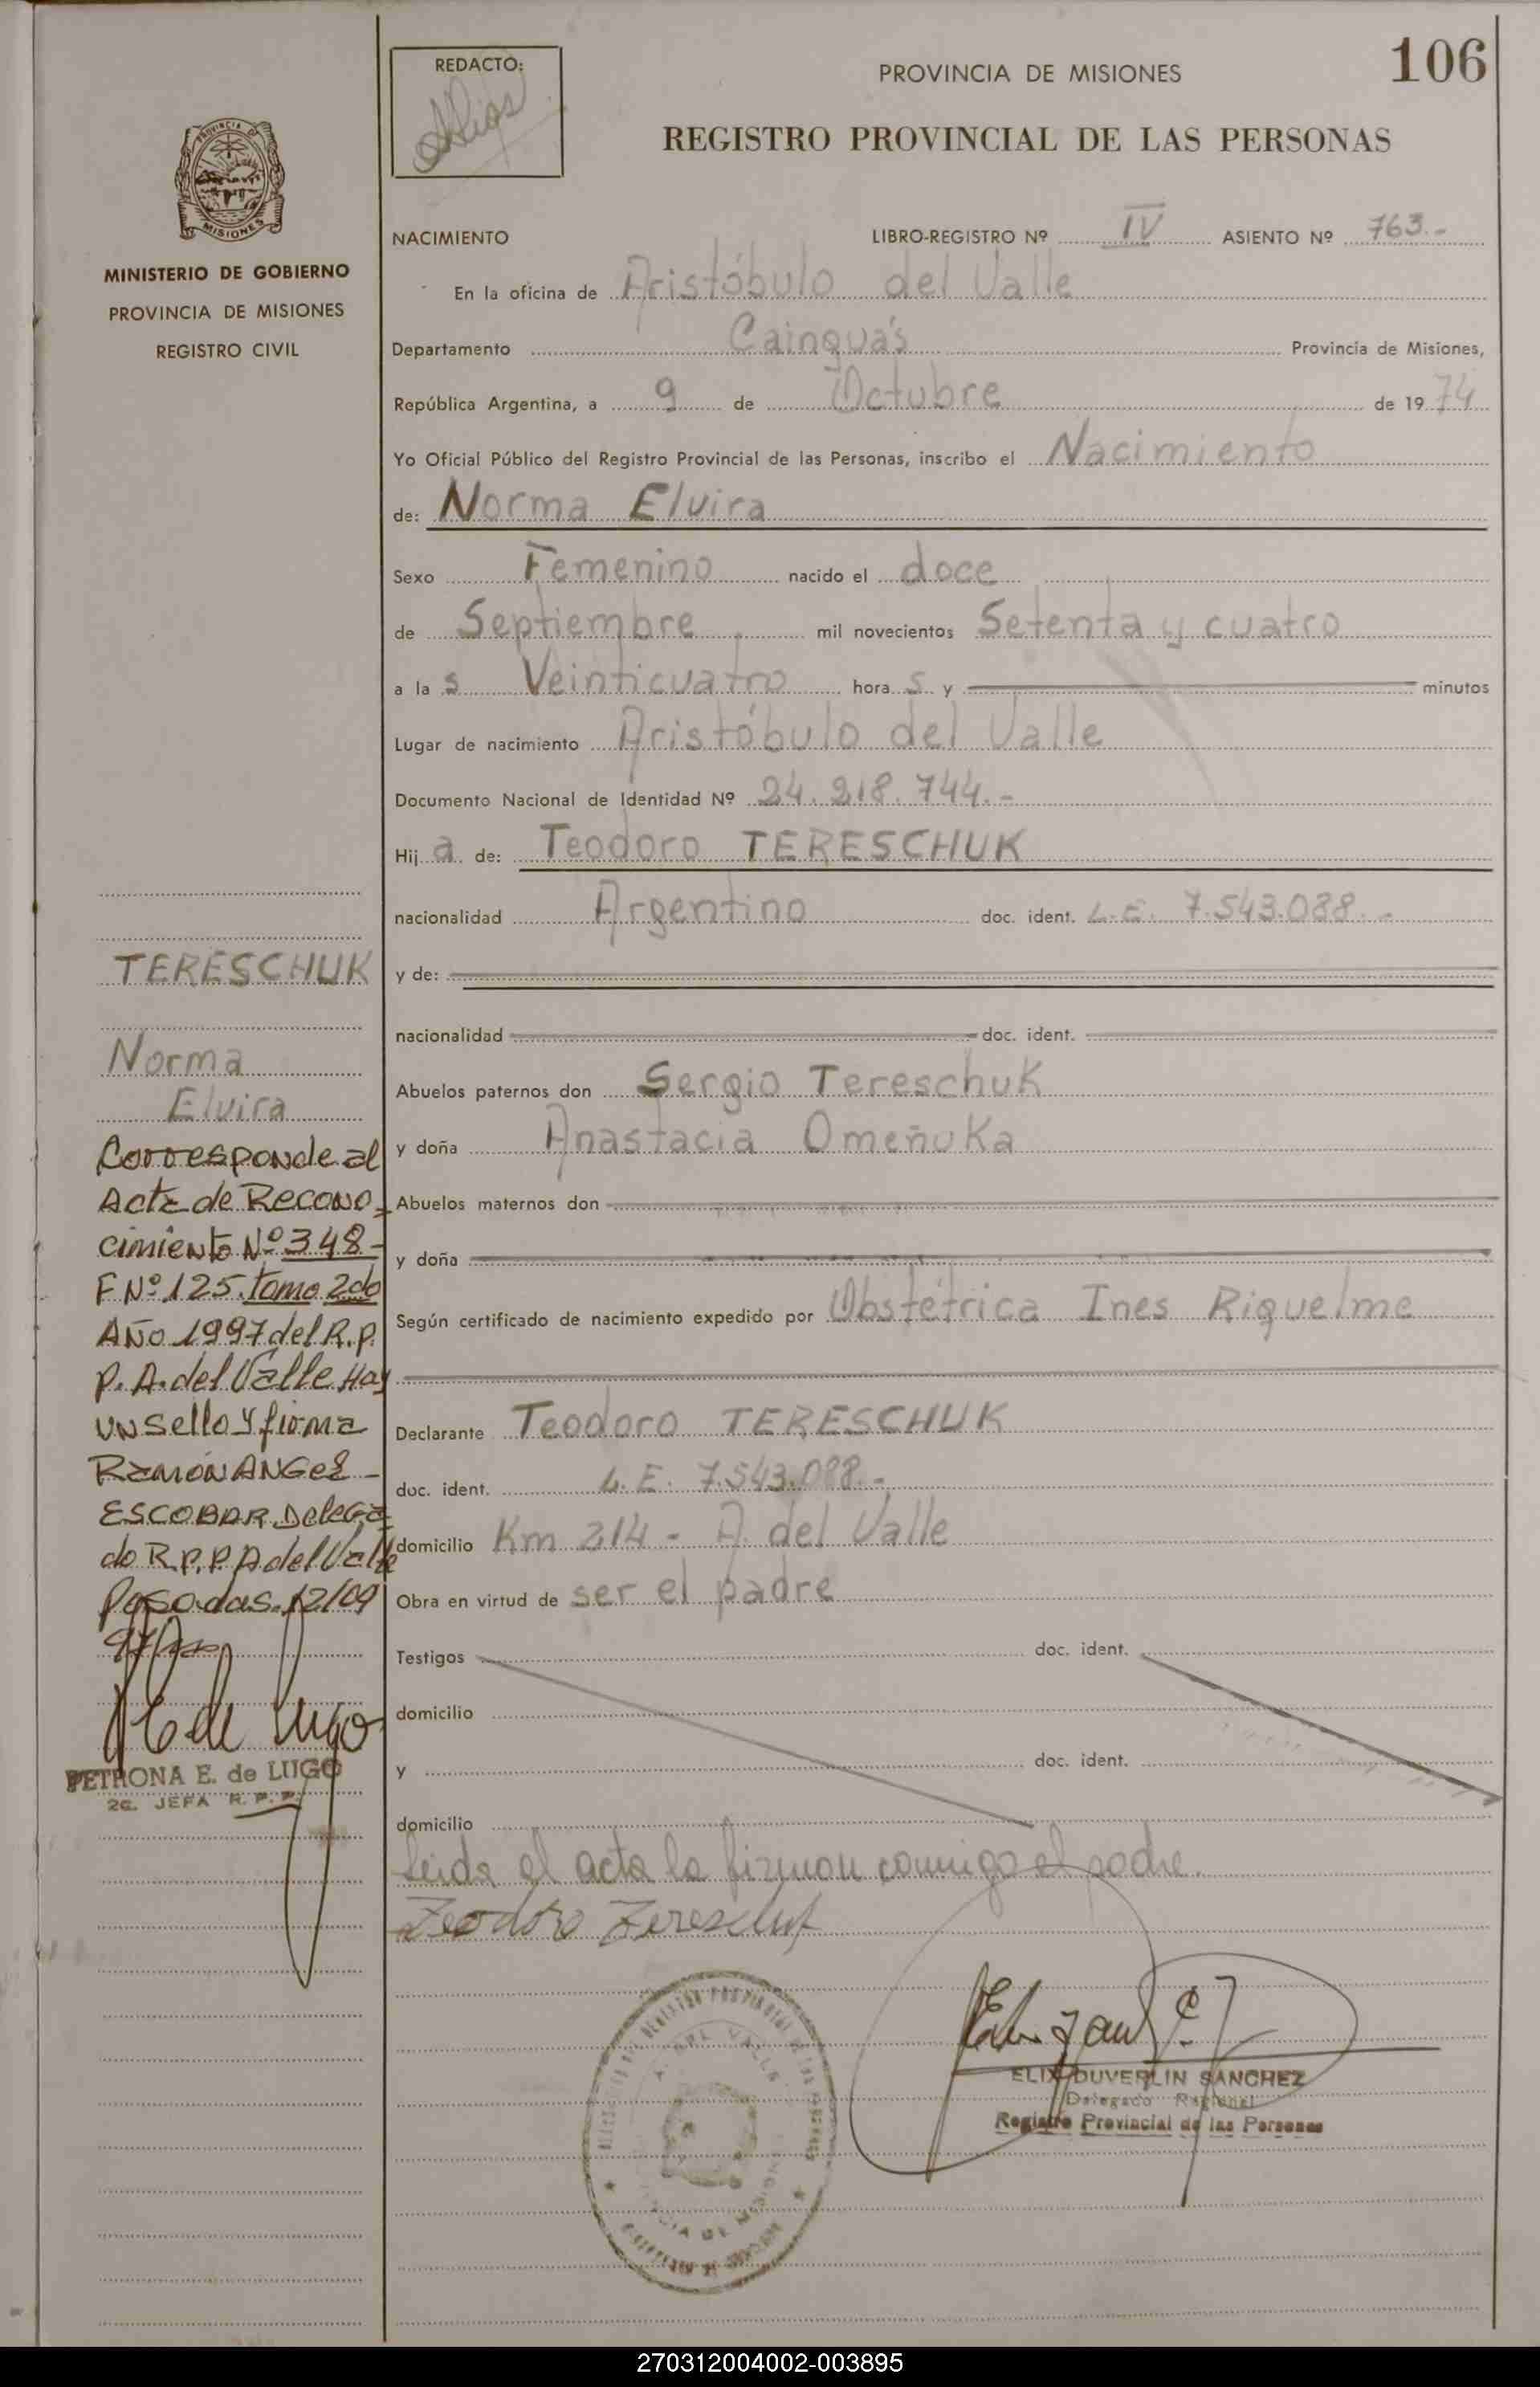 REDACTO:
PROVINCIA DE MISIONES
106
REGISTRO PROVINCIAL DE LAS PERSONAS
PROVINCIA DE
MISIONES
MINISTERIO DE GOBIERNO
PROVINCIA DE MISIONES
REGISTRO CIVIL
NACIMIENTO LIBRO-REGISTRO Nº IV ASIENTO Nº 763.-
En la oficina de Aristóbulo del Valle
Departamento Cainguás Provincia de Misiones,
República Argentina, a 9 de Octubre de 1974
Yo Oficial Público del Registro Provincial de las Personas, inscribo el Nacimiento
de: Norma Elvira
Sexo Femenino nacido el doce
de Septiembre mil novecientos Setenta y cuatro
a las Veinticuatro horas y minutos
Lugar de nacimiento Aristóbulo del Valle
Documento Nacional de Identidad Nº 24.218.744.-
Hija de: Teodoro TERESCHUK
nacionalidad Argentino doc. ident. L.E. 7.543.088.-
y de:
nacionalidad doc. ident.
Abuelos paternos don Sergio Tereschuk
y doña Anastacia Omeñuka
Abuelos maternos don
y doña
Según certificado de nacimiento expedido por Obstétrica Ines Riquelme
Declarante Teodoro TERESCHUK
doc. ident. L.E. 7.543.088.-
domicilio Km 214 - A. del Valle
Obra en virtud de ser el padre
Testigos doc. ident.
domicilio
y doc. ident.
domicilio
Leida el acta la firman conmigo el padre.
Teodoro Tereschuk
ELIX DUVERLIN SANCHEZ
Delegado Regional
Registro Provincial de las Personas
A. DEL VALLE
TERESCHUK
Norma
Elvira
Corresponde al
Acta de Recono-
cimiento Nº 348-
F Nº 125. tomo 2do
Año 1997 del R.P.
P. A. del Valle Hay
un sello y firma
RAMON ANGEL
ESCOBAR Delega
do R.P.P. A del Valle
Posadas. 12/09
97
PETRONA E. de LUGO
2a. JEFA R. P. P.
270312004002-003895